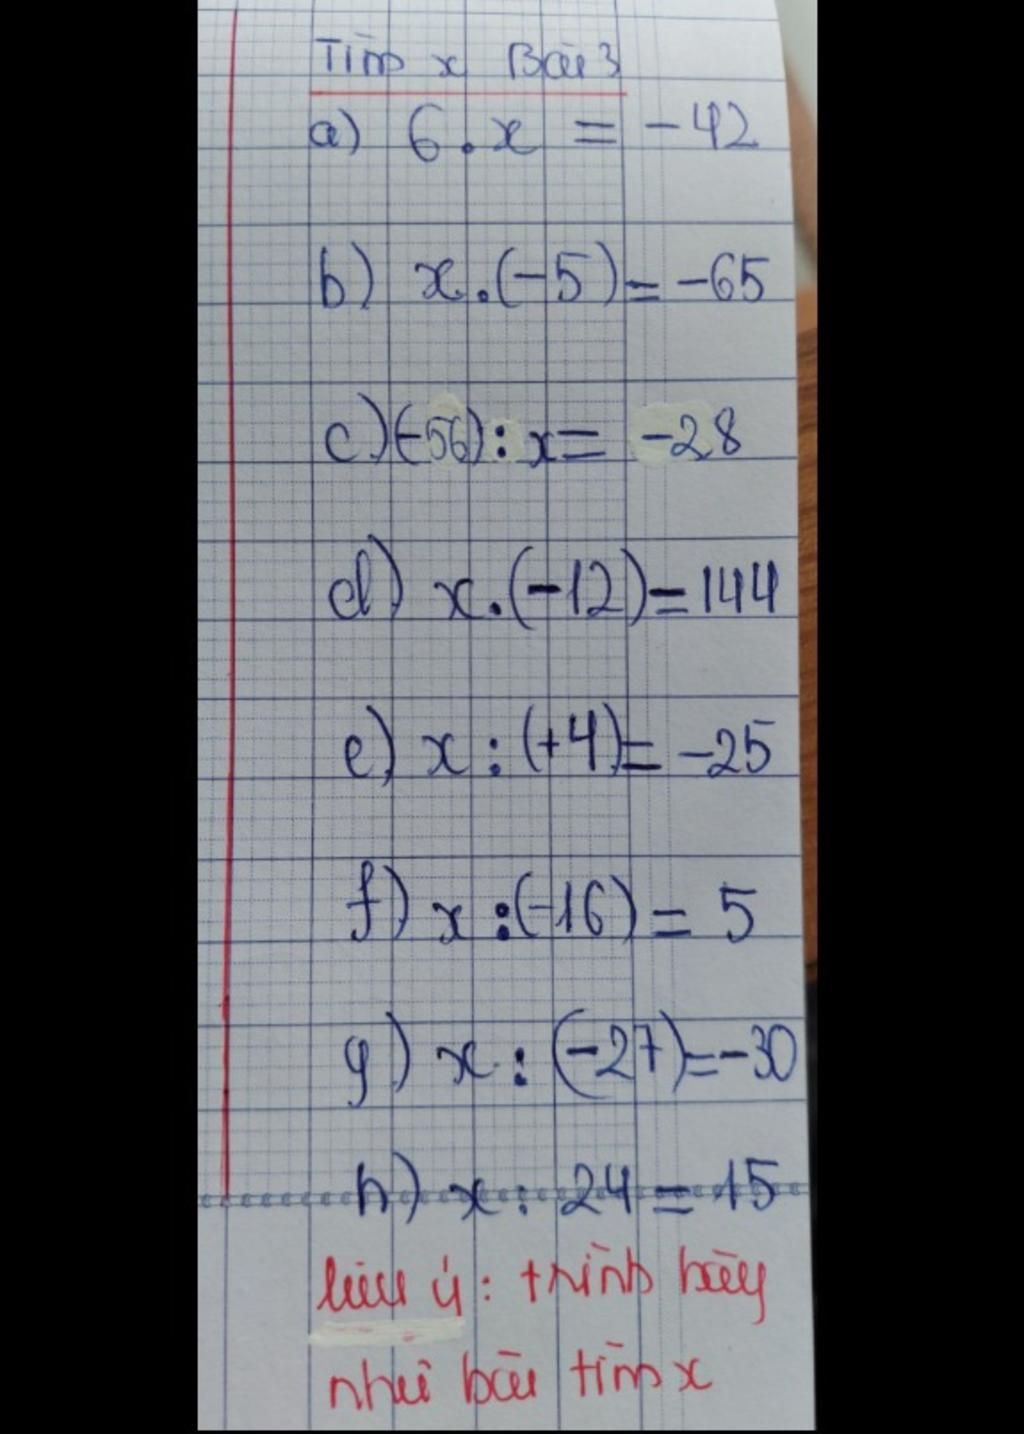 Tìm x Bài 3
a) 6 . x = -42
b) x . (-5) = -65
c) (-56) : x = -28
d) x . (-12) = 144
e) x : (+4) = -25
f) x : (-16) = 5
g) x : (-27) = -30
h) x : 24 = 15
lưu ý : trình bày
như bài tìm x